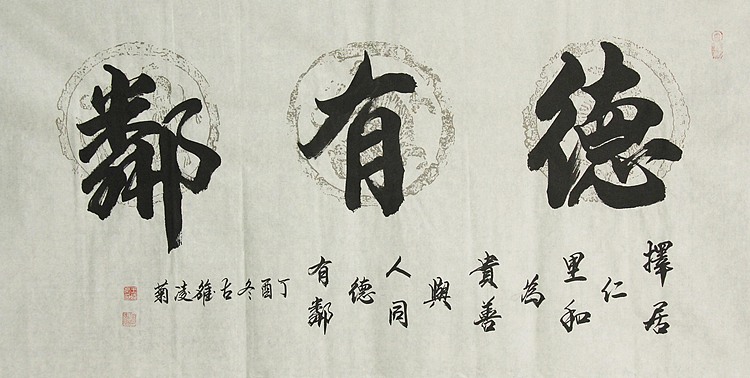 德有鄰
擇居
仁
里和
為
貴善
與
人同
德
有鄰
丁酉冬古雒凌菊